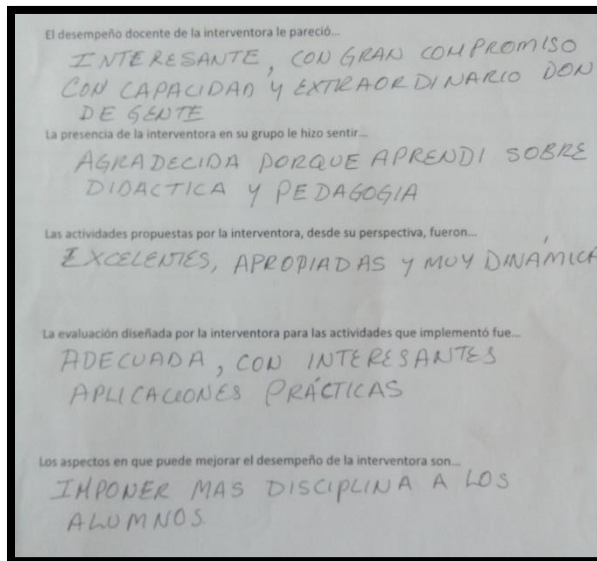 El desempeño docente de la interventora le pareció...
INTERESANTE, CON GRAN COMPROMISO
CON CAPACIDAD Y EXTRAORDINARIO DON
DE GENTE
La presencia de la interventora en su grupo le hizo sentir...
AGRADECIDA PORQUE APRENDI SOBRE
DIDACTICA Y PEDAGOGIA
Las actividades propuestas por la interventora, desde su perspectiva, fueron...
EXCELENTES, APROPIADAS Y MUY DINÁMICA
La evaluación diseñada por la interventora para las actividades que implementó fue...
ADECUADA, CON INTERESANTES
APLICACIONES PRÁCTICAS
Los aspectos en que puede mejorar el desempeño de la interventora son...
IMPONER MAS DISCIPLINA A LOS
ALUMNOS